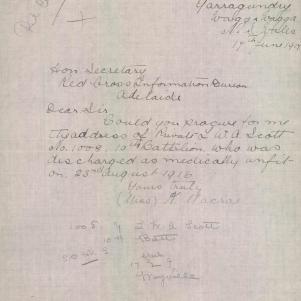 Yarragundry
Wagga Wagga
N. S. Wales
17th June 19
Hon Secretary
Red Cross Information Bureau
Adelaide
Dear Sir
Could you procure for me
the address of Private L. W. A. Scott
No. 1008, 10th Battalion who was
discharged as medically unfit
on 23rd August 1916
Yours truly
(Miss) A. Macrae
1008 L W A Scott
10th Batt